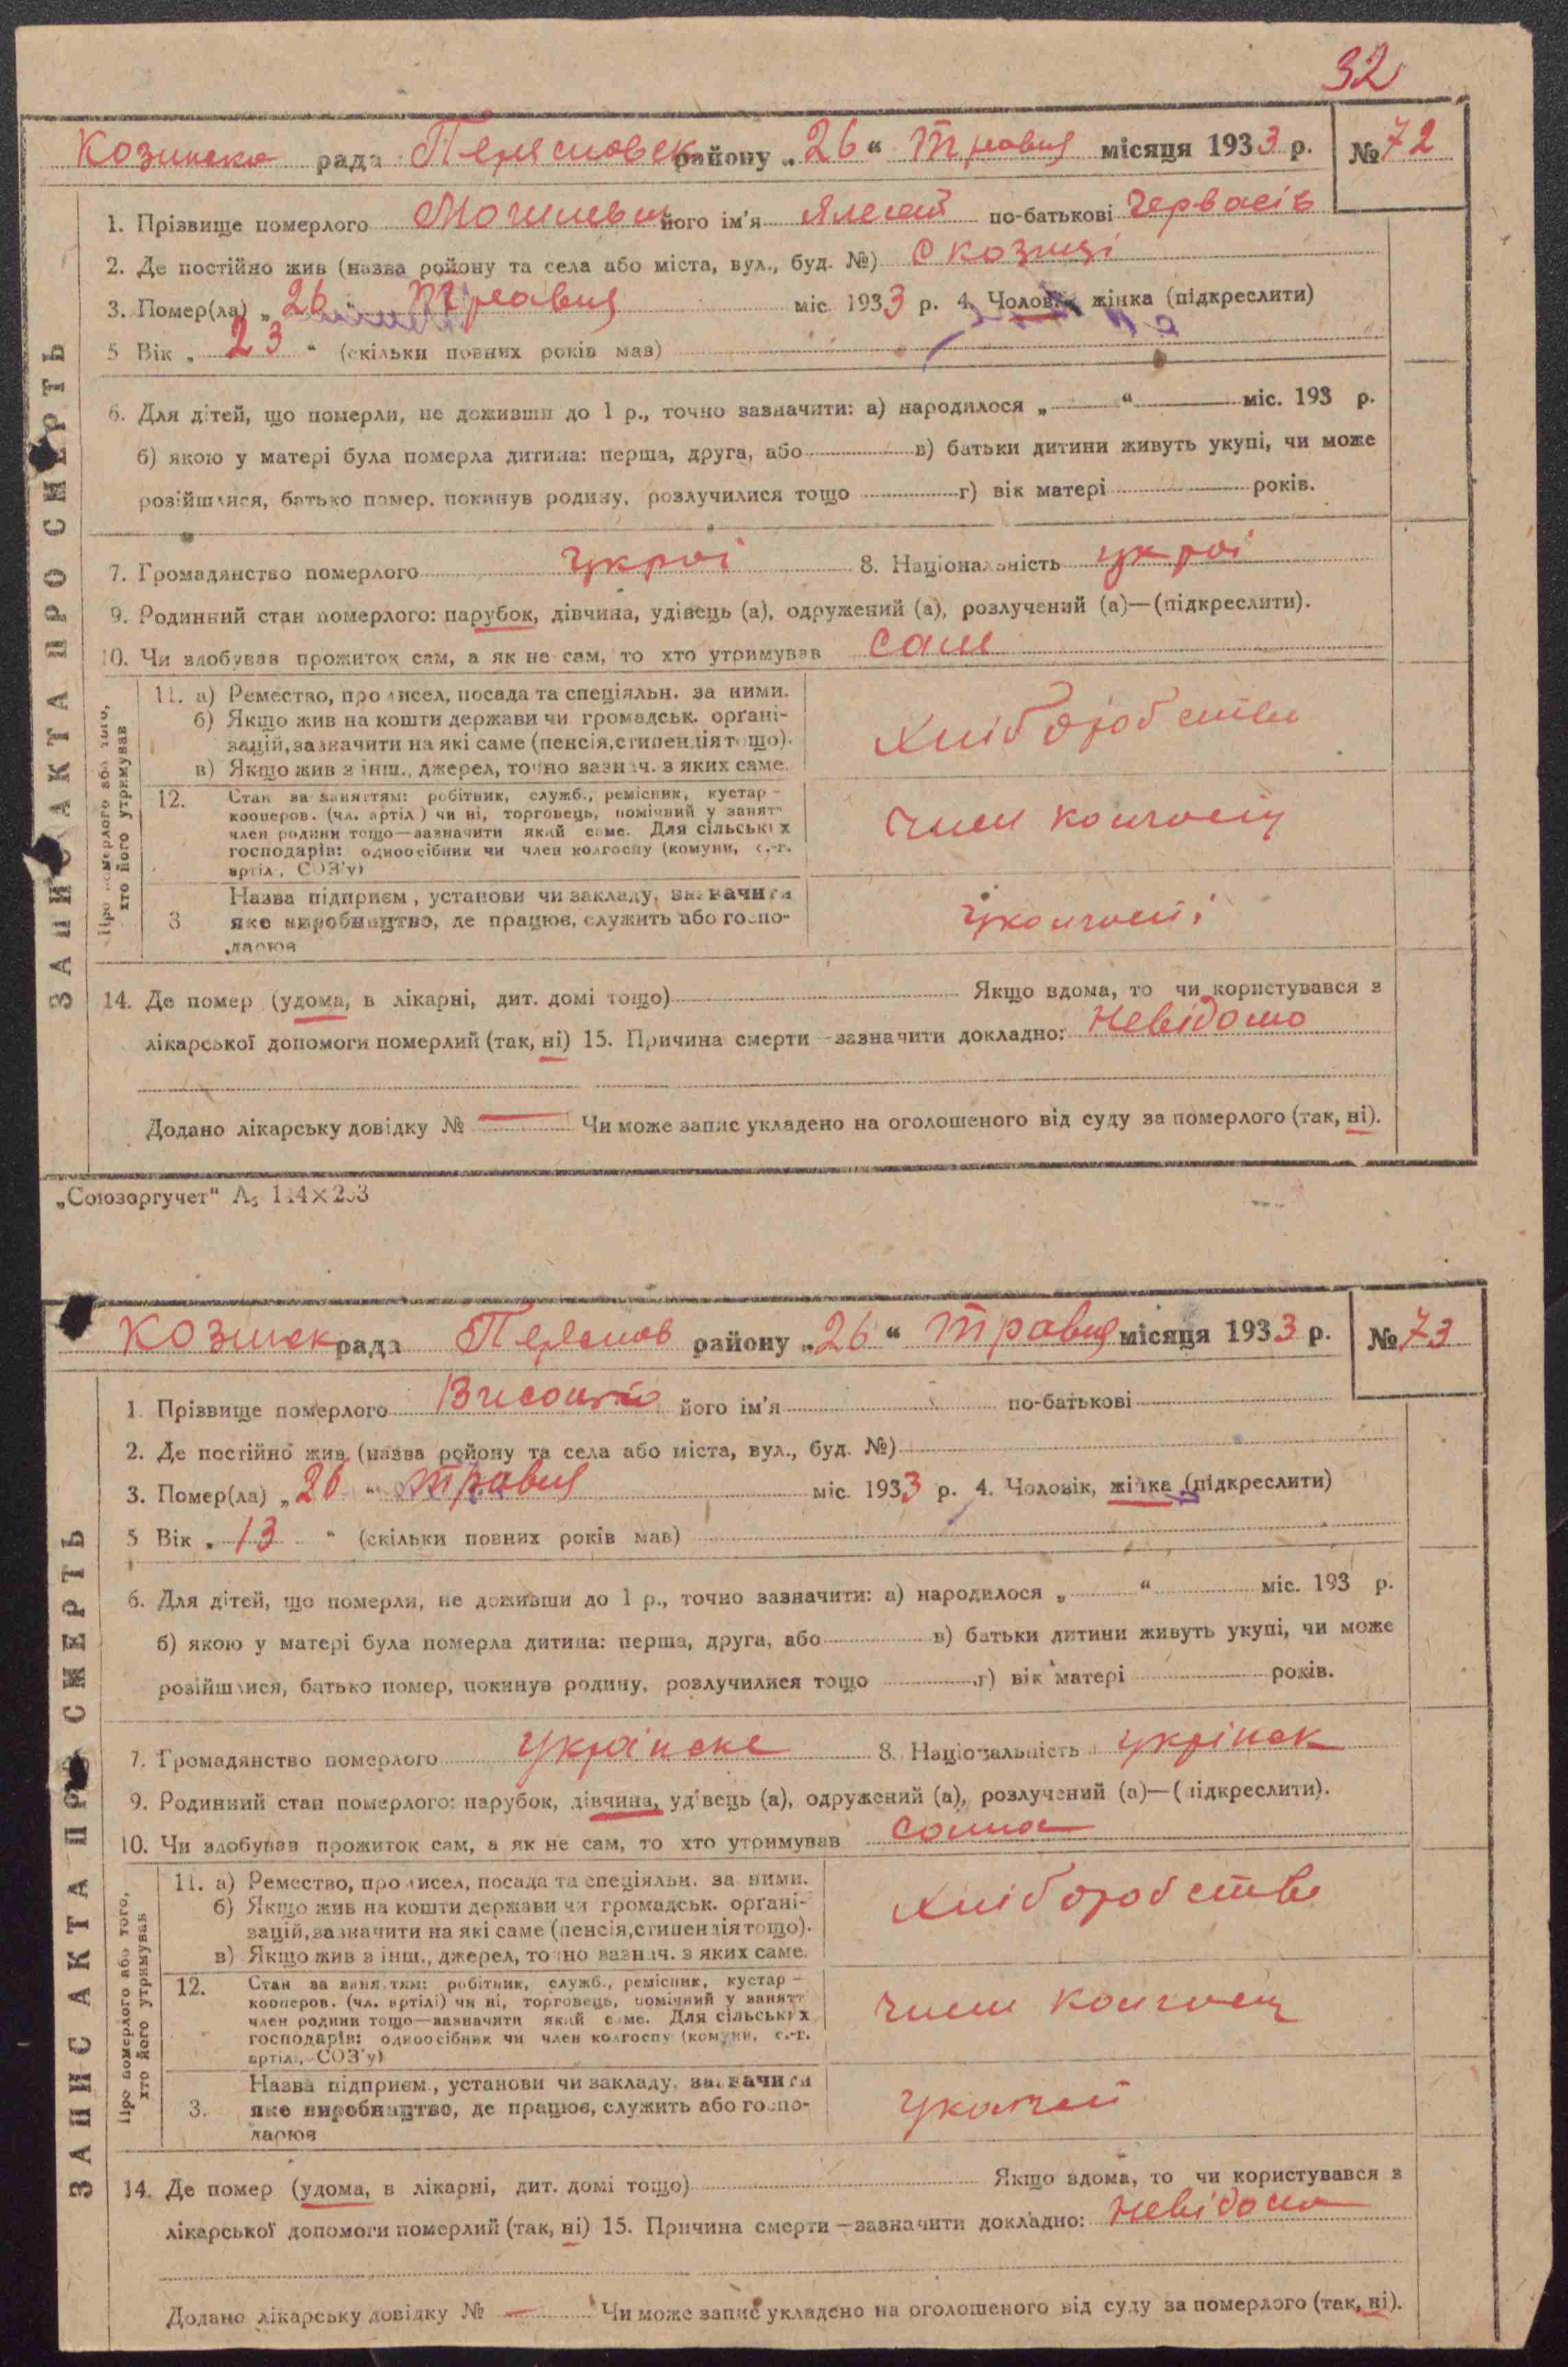 32
Козинска рада Переясловск району „26“ травня місяця 1933 р. № 72
1. Прізвище померлого його ім'я по-батькові
2. Де постійно жив (назва району та села або міста, вул., буд. №) с козинці
3. Помер(ла) „26“ травня міс. 1933 р. 4. Чоловік, жінка (підкреслити)
5 Вік „23“ (скільки повних років мав)
6. Для дітей, що померли, не доживши до 1 р., точно зазначити: а) народилося „ “ міс. 193 р.
б) якою у матері була померла дитина: перша, друга, або в) батьки дитини живуть укупі, чи може
розійшлися, батько помер, покинув родину, розлучилися тощо г) вік матері років.
7. Громадянство померлого 8. Національність
9. Родинний стан померлого: парубок, дівчина, удівець (а), одружений (а), розлучений (а)—(підкреслити).
10. Чи здобував прожиток сам, а як не сам, то хто утримував сам
ЗАПИС АКТА ПРО СМЕРТЬ
Про померлого або того, хто його утримував
11. а) Ремество, промисел, посада та спеціяльн. за ними.
б) Якщо жив на кошти держави чи громадськ. органі-
зацій, зазначити на які саме (пенсія, стипендія тощо).
в) Якщо жив з інш., джерел, точно зазнач. з яких саме.
Хліборобство
12. Стан за заняттям: робітник, служб., ремісник, кустар –
кооперов. (чл. артілі) чи ні, торговець, помічний у занятт
член родини тощо—зазначити який саме. Для сільських
господарів: одноосібник чи член колгоспу (комуни, с.-г.
артілі, СОЗ'у)
член колгоспу
3 Назва підприєм., установи чи закладу, зазначити
яке виробництво, де працює, служить або госпо-
дарює
14. Де помер (удома, в лікарні, дит. домі тощо) Якщо вдома, то чи користувався з
лікарської допомоги померлий (так, ні) 15. Причина смерти –зазначити докладно: Невідомо
Додано лікарську довідку № — Чи може запис укладено на оголошеного від суду за померлого (так, ні).
„Союзоргучет“ А5
Козинск рада району „26“ травня місяця 1933 р. № 73
1. Прізвище померлого його ім'я по-батькові
2. Де постійно жив (назва району та села або міста, вул., буд. №)
3. Помер(ла) „26“ травня міс. 1933 р. 4. Чоловік, жінка (підкреслити)
5 Вік „13“ (скільки повних років мав)
6. Для дітей, що померли, не доживши до 1 р., точно зазначити: а) народилося „ “ міс. 193 р.
б) якою у матері була померла дитина: перша, друга, або в) батьки дитини живуть укупі, чи може
розійшлися, батько помер, покинув родину, розлучилися тощо г) вік матері років.
7. Громадянство померлого Українске 8. Національність укрінск
9. Родинний стан померлого: парубок, дівчина, удівець (а), одружений (а), розлучений (а)—(підкреслити).
10. Чи здобував прожиток сам, а як не сам, то хто утримував сама
ЗАПИС АКТА ПРО СМЕРТЬ
Про померлого або того, хто його утримував
11. а) Ремество, промисел, посада та спеціяльн. за ними.
б) Якщо жив на кошти держави чи громадськ. органі-
зацій, зазначити на які саме (пенсія, стипендія тощо).
в) Якщо жив з інш., джерел, точно зазнач. з яких саме.
Хліборобство
12. Стан за заняттям: робітник, служб., ремісник, кустар –
кооперов. (чл. артілі) чи ні, торговець, помічний у занятт
член родини тощо—зазначити який саме. Для сільських
господарів: одноосібник чи член колгоспу (комуни, с.-г.
артілі, СОЗ'у)
член колгоспу
3. Назва підприєм., установи чи закладу, зазначити
яке виробництво, де працює, служить або госпо-
дарює
14. Де помер (удома, в лікарні, дит. домі тощо) Якщо вдома, то чи користувався з
лікарської допомоги померлий (так, ні) 15. Причина смерти –зазначити докладно: Невідомо
Додано лікарську довідку № — Чи може запис укладено на оголошеного від суду за померлого (так, ні).